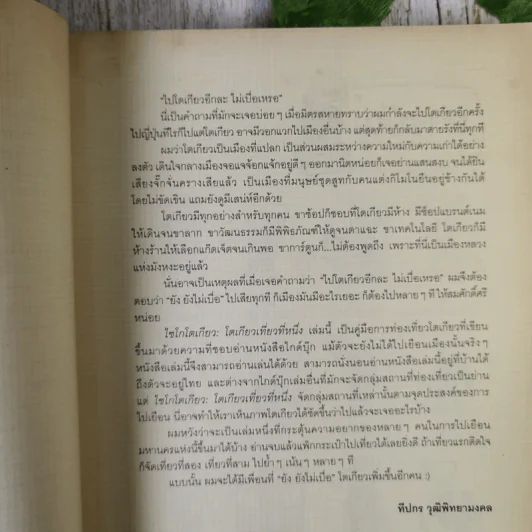 "ไปโตเกียวอีกละ ไม่เบื่อเหรอ"
นี่เป็นคำถามที่มักจะเจอบ่อย ๆ เมื่อมิตรสหายทราบว่าผมกำลังจะไปโตเกียวอีกครั้ง
ไปญี่ปุ่นทีไรก็ไปแต่โตเกียว อาจมีวอกแวกไปเมืองอื่นบ้าง แต่สุดท้ายก็กลับมาตายรังที่นี่ทุกที
ผมว่าโตเกียวเป็นเมืองที่แปลก เป็นส่วนผสมระหว่างความใหม่กับความเก่าได้อย่าง
ลงตัว เดินใจกลางเมืองจอแจจ้อกแจ้กอยู่ดี ๆ ออกมานิดหน่อยก็เจอย่านแสนสงบ จนได้ยิน
เสียงจั๊กจั่นครางเสียแล้ว เป็นเมืองที่มนุษย์ชุดสูทกับคนแต่งกิโมโนยืนอยู่ข้างกันได้
โดยไม่ขัดเขิน แถมยังดูมีเสน่ห์อีกด้วย
โตเกียวมีทุกอย่างสำหรับทุกคน ขาช้อปก็ชอบที่โตเกียวมีห้าง มีช็อปแบรนด์เนม
ให้เดินจนขาลาก ขาวัฒนธรรมก็มีพิพิธภัณฑ์ให้ดูจนตาแฉะ ขาเทคโนโลยี โตเกียวก็มี
ห้างร้านให้เลือกแก็ดเจ็ตจนเกินพอ ขาการ์ตูนก็...ไม่ต้องพูดถึง เพราะที่นี่เป็นเมืองหลวง
แห่งมังหงะอยู่แล้ว
นั่นอาจเป็นเหตุผลที่เมื่อเจอคำถามว่า "ไปโตเกียวอีกละ ไม่เบื่อเหรอ" ผมจึงต้อง
ตอบว่า "ยัง ยังไม่เบื่อ" ไปเสียทุกที ก็เมืองมันมีอะไรเยอะ ก็ต้องไปหลาย ๆ ที ให้สมศักดิ์ศรี
หน่อย
ไซโกโตเกียว: โตเกียวเที่ยวที่หนึ่ง เล่มนี้ เป็นคู่มือการท่องเที่ยวโตเกียวที่เขียน
ขึ้นมาด้วยความที่ชอบอ่านหนังสือไกด์บุ๊ก แม้ตัวจะยังไม่ได้ไปเยือนเมืองนั้นจริง ๆ
หนังสือเล่มนี้จึงสามารถอ่านเล่นได้ด้วย สามารถนั่งนอนอ่านหนังสือเล่มนี้อยู่ที่บ้านได้
ถึงตัวจะอยู่ไทย และต่างจากไกด์บุ๊กเล่มอื่นที่มักจะจัดกลุ่มสถานที่ท่องเที่ยวเป็นย่าน
แต่ ไซโกโตเกียว: โตเกียวเที่ยวที่หนึ่ง จัดกลุ่มสถานที่เหล่านั้นตามจุดประสงค์ของการ
ไปเยือน นี่อาจทำให้เราเห็นภาพโตเกียวได้ชัดขึ้นว่าไปแล้วจะเจออะไรบ้าง
ผมหวังว่าจะเป็นเล่มหนึ่งที่กระตุ้นความอยากของหลาย ๆ คนในการไปเยือน
มหานครแห่งนี้ขึ้นมาได้บ้าง อ่านจบแล้วแพ็กกระเป๋าไปเที่ยวได้เลยยิ่งดี ถ้าเที่ยวแรกติดใจ
ก็จัดเที่ยวที่สอง เที่ยวที่สาม ไปย้ำ ๆ เน้น ๆ หลาย ๆ ที
แบบนั้น ผมจะได้มีเพื่อนที่ "ยัง ยังไม่เบื่อ" โตเกียวเพิ่มขึ้นอีกคน :)
ทีปกร วุฒิพิทยามงคล